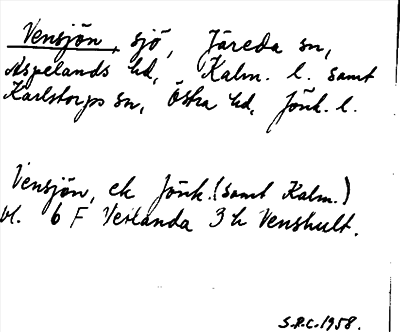 Vensjön, sjö, Järeda sn,
Aspelands hd, Kalm. l. samt
Karlstorps sn, Östra hd, Jönk. l.
Vensjön, ek Jönk. (samt Kalm.)
bl. 6 F Vetlanda 3 h Venshult.
S.P.C. 1958.